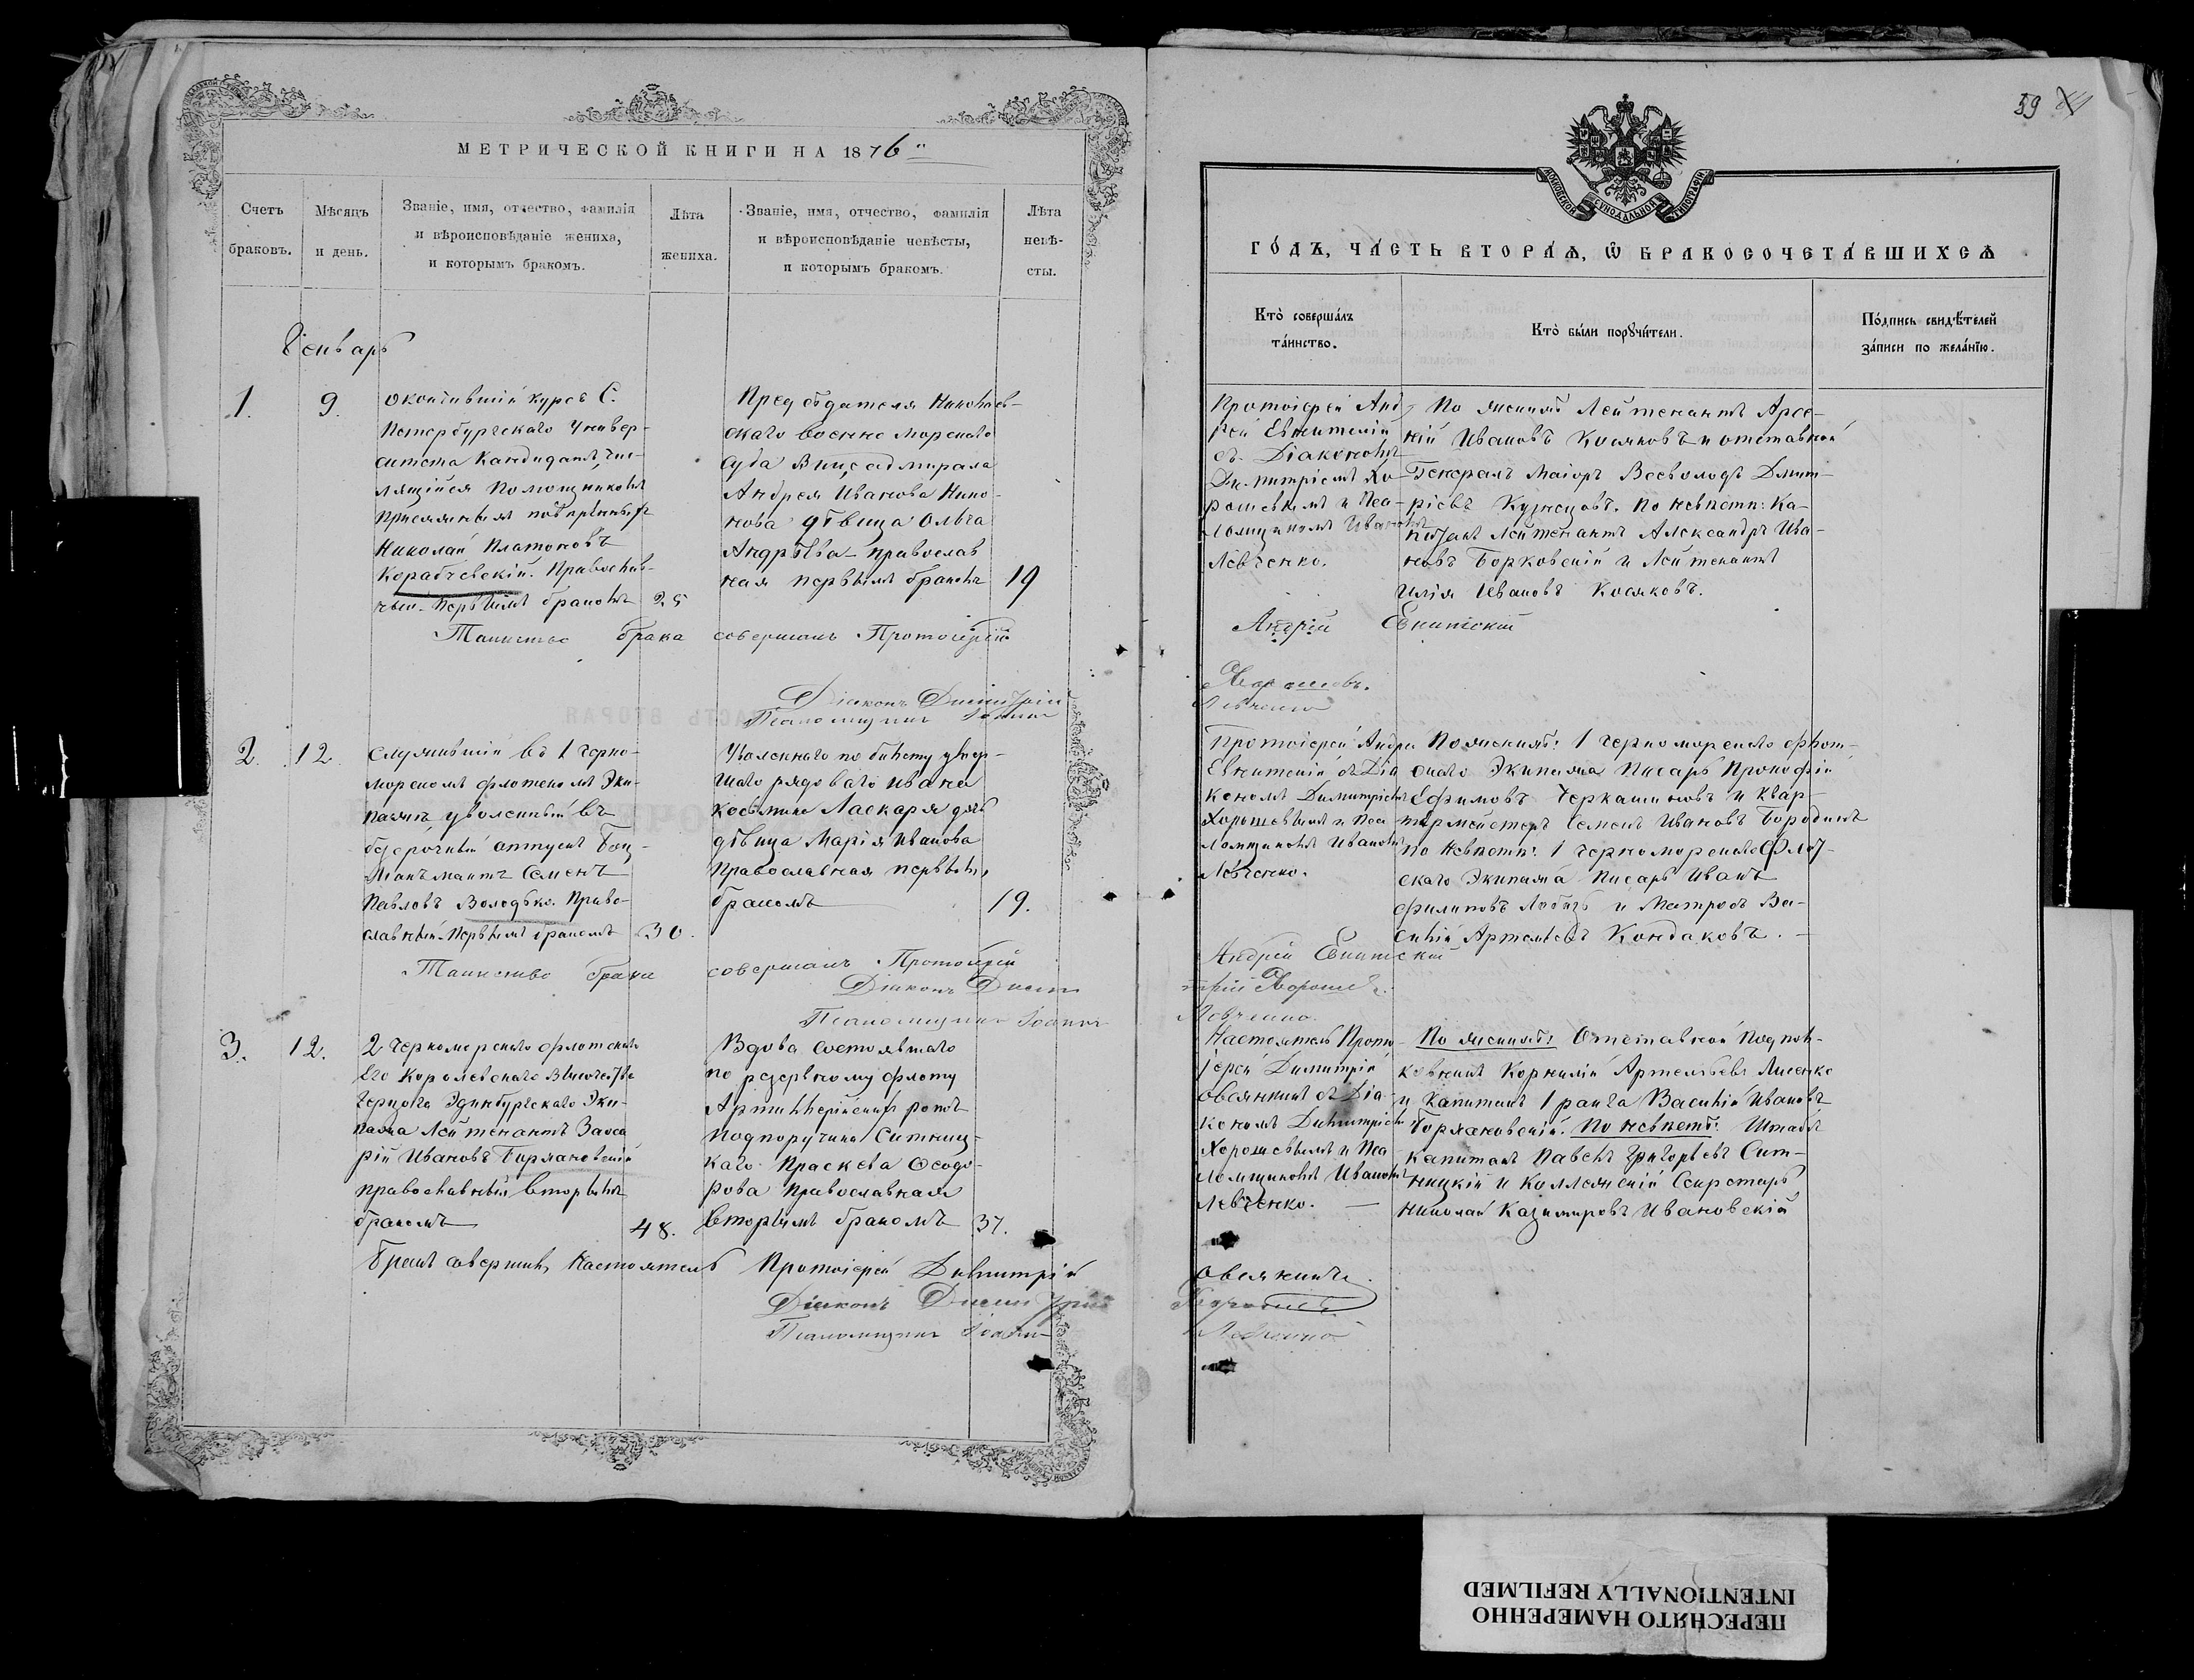 МЕТРИЧЕСКОЙ КНИГИ НА 1876
Счетъ браковъ.
Мѣсяцъ и день.
Званіе, имя, отчество, фамилія
и вѣроисповѣданіе жениха,
и которымъ бракомъ.
Лѣта
жениха.
Званіе, имя, отчество, фамилія
и вѣроисповѣданіе невѣсты,
и которымъ бракомъ.
Лѣта
невѣ-
сты.
Генварь
1.
9.
Окончившій курсъ С.
Петербургскаго Универ-
ситета Кандидатъ, чис-
лящійся Помощникомъ
Присяжныхъ повѣренныхъ
Николай Платоновъ
Карабчевскій. Православ-
ный. Первымъ бракомъ
25
Предсѣдателя Николаев-
скаго Военно Морскаго
Суда Вице адмирала
Андрея Иванова Нико-
нова дѣвица Ольга
Андрѣева - Православ
ная первымъ бракомъ
19
Таинство брака совершалъ Протоіерей
Діаконъ Димитрій
Псаломщикъ Іоаннъ
2.
12.
Служившій въ 1 Черно-
морскомъ флотскомъ Эки-
пажѣ уволенный въ
безсрочный отпускъ Боц-
манъ матъ Семенъ
Павловъ Володько. Право-
славный. Первымъ бракомъ
30.
Уволеннаго по билету умер-
шаго рядоваго Ивана
Косьмина Ласкаря дочь
дѣвица Марія Иванова
Православная первымъ
бракомъ
19.
Таинство брака совершалъ Протоіерей
Діаконъ Дими
Псаломщикъ Іоаннъ
3.
12.
2 Черноморскаго флотскаго
Его Королевскаго Высочества
Герцога Эдинбургскаго Эки-
пажа Лейтенантъ Заха
рій Ивановъ Боржановскій
православный вторымъ
бракомъ
48.
Вдова состоявшаго
по резервному флоту
Артиллерійской ротѣ
Подпоручика Ситниц-
каго Праскева Ѳеодо-
рова Православная
вторымъ бракомъ
37.
Бракъ совершилъ Настоятель Протоіерей Димитрій
Діаконъ Димитрій
Псаломщикъ Іоанн
59
МОСКОВСКОЙ СѴНОДАЛЬНОЙ ТИПОГРАФІИ
ГО́ДЪ, ЧА́СТЬ ВТОРА́Ѧ, Ѡ҆ БРАКОСОЧЕТА́ВШИХСѦ
Кто̀ соверша́лъ
та́инство.
Кто̀ бы́ли порꙋчи́тели.
По́дпись свидѣ́телей
за́писи по жела́нїю.
Протоіерей Анд
рей Евнитскій
съ Діакономъ
Димитріемъ Хо
рошевымъ и Пса-
ломщикомъ Иваномъ
Левченко.
По женихѣ Лейтенантъ Арсе-
ній Ивановъ Косяковъ и отставной
Генералъ Маіоръ Всеволодъ Дмит-
ріевъ Кузнецовъ. По невѣстѣ: Ка-
питанъ Лейтенантъ Александръ Ива-
новъ Борковскій и Лейтенантъ
Илія Ивановъ Косяковъ.
Андрей Евнитскій
Хорошевъ.
Левченко
Протоіерей Андрей
Евнитскій съ Діа
кономъ Димитріемъ
Хорошевымъ и Пса
ломщикомъ Иваномъ
Левченко.
По женихѣ: 1 Черноморскаго флот-
скаго Экипажа Писарь Прокофій
Ефимовъ Черкашиновъ и Квар-
тирмейстеръ Семенъ Ивановъ Бородинъ
По невѣстѣ: 1 Черноморскаго Флот-
скаго Экипажа Писарь Иванъ
Филиповъ и Матросъ Ва-
силій Артемьевъ Кондаковъ.
Андрей Евнитскій
трій Хорошевъ.
Левченко.
Настоятель Прото-
іерей Димитрій
Овсянкинъ съ Діа-
кономъ Димитріемъ
Хорошевымъ и Пса
ломщикомъ Иваномъ
Левченко.
По женихѣ: Отставной Подпол-
ковникъ Корнилій Артемьевъ Лисенко
и Капитанъ 1 ранга Василій Ивановъ
Боржановскій. По невѣстѣ: Штабсъ
капитанъ Павелъ Григорьевъ Сит-
ницкій и Коллежскій Секретарь
Николай Казимировъ Ивановскій
Овсянкинъ.
Хорошевъ
Левченко
ПЕРЕСНЯТО НАМЕРЕННО
INTENTIONALLY REFILMED